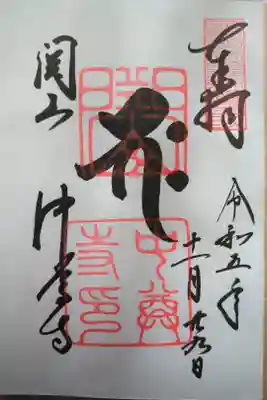 奉拝
令和五年
十一月廿九日
関山
中尊寺